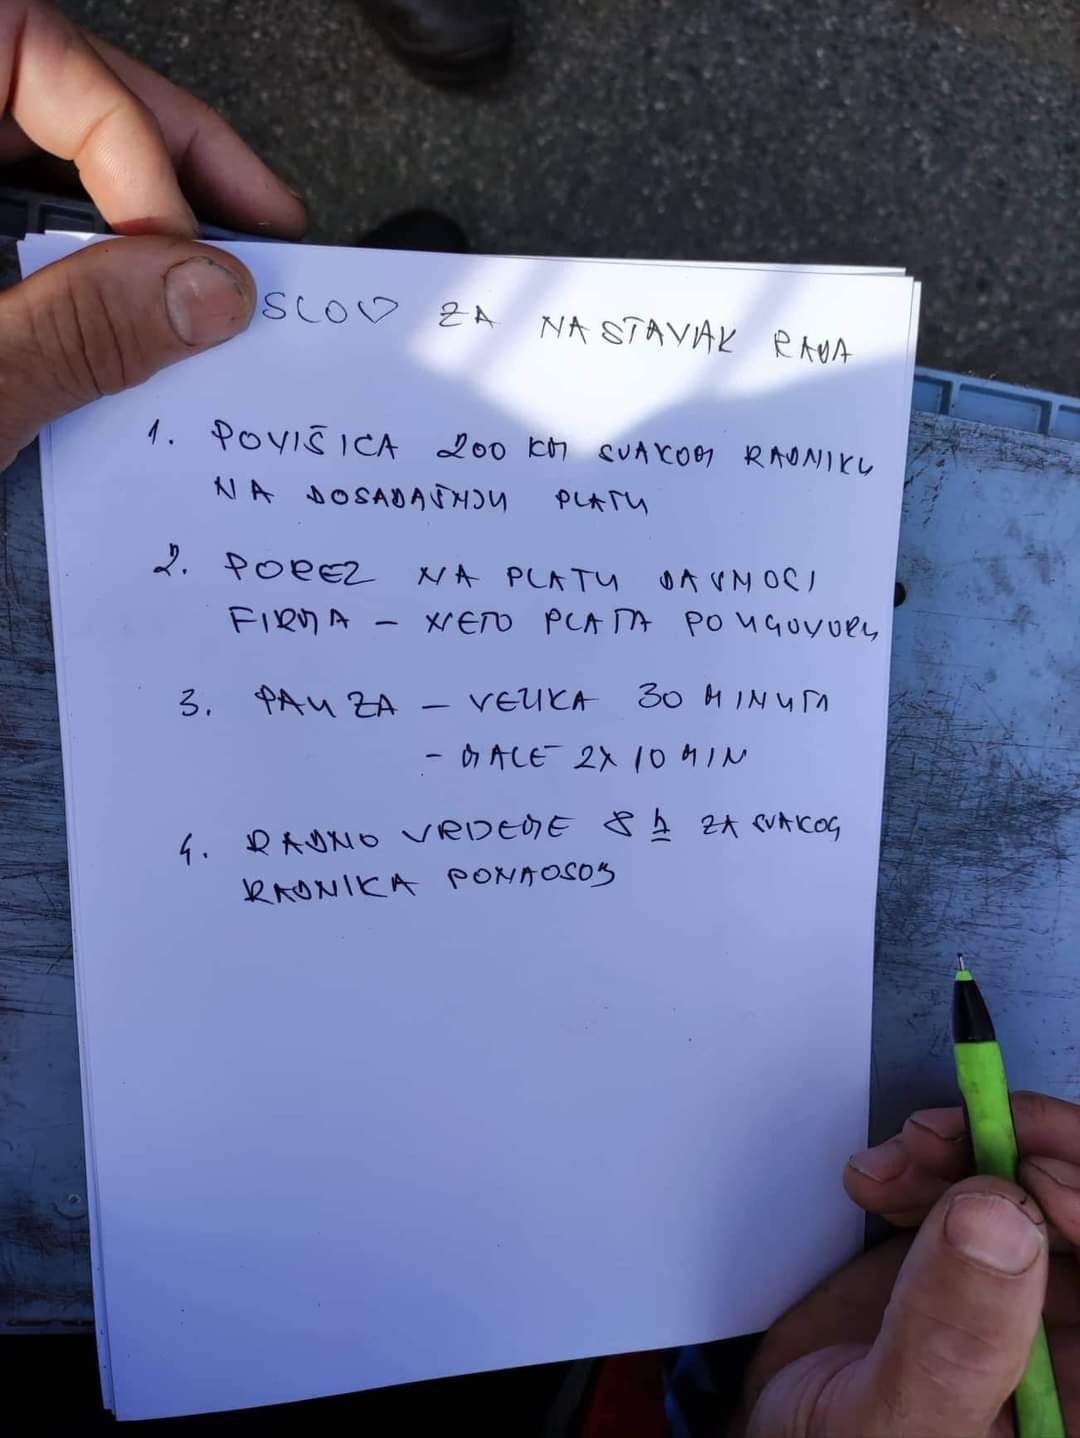 SLOV ZA NASTAVAK RADA
1. POVIŠICA 200 KM SVAKOM RADNIKU
NA DOSADAŠNJU PLATU
2. POREZ NA PLATU
FIRMA – NETO PLATA PO UGOVORU
3. PAUZA – VELIKA 30 MINUTA
– MALE 2X10 MIN
4. RADNO VRIJEME 8 h ZA SVAKOG
RADNIKA PONAOSOB